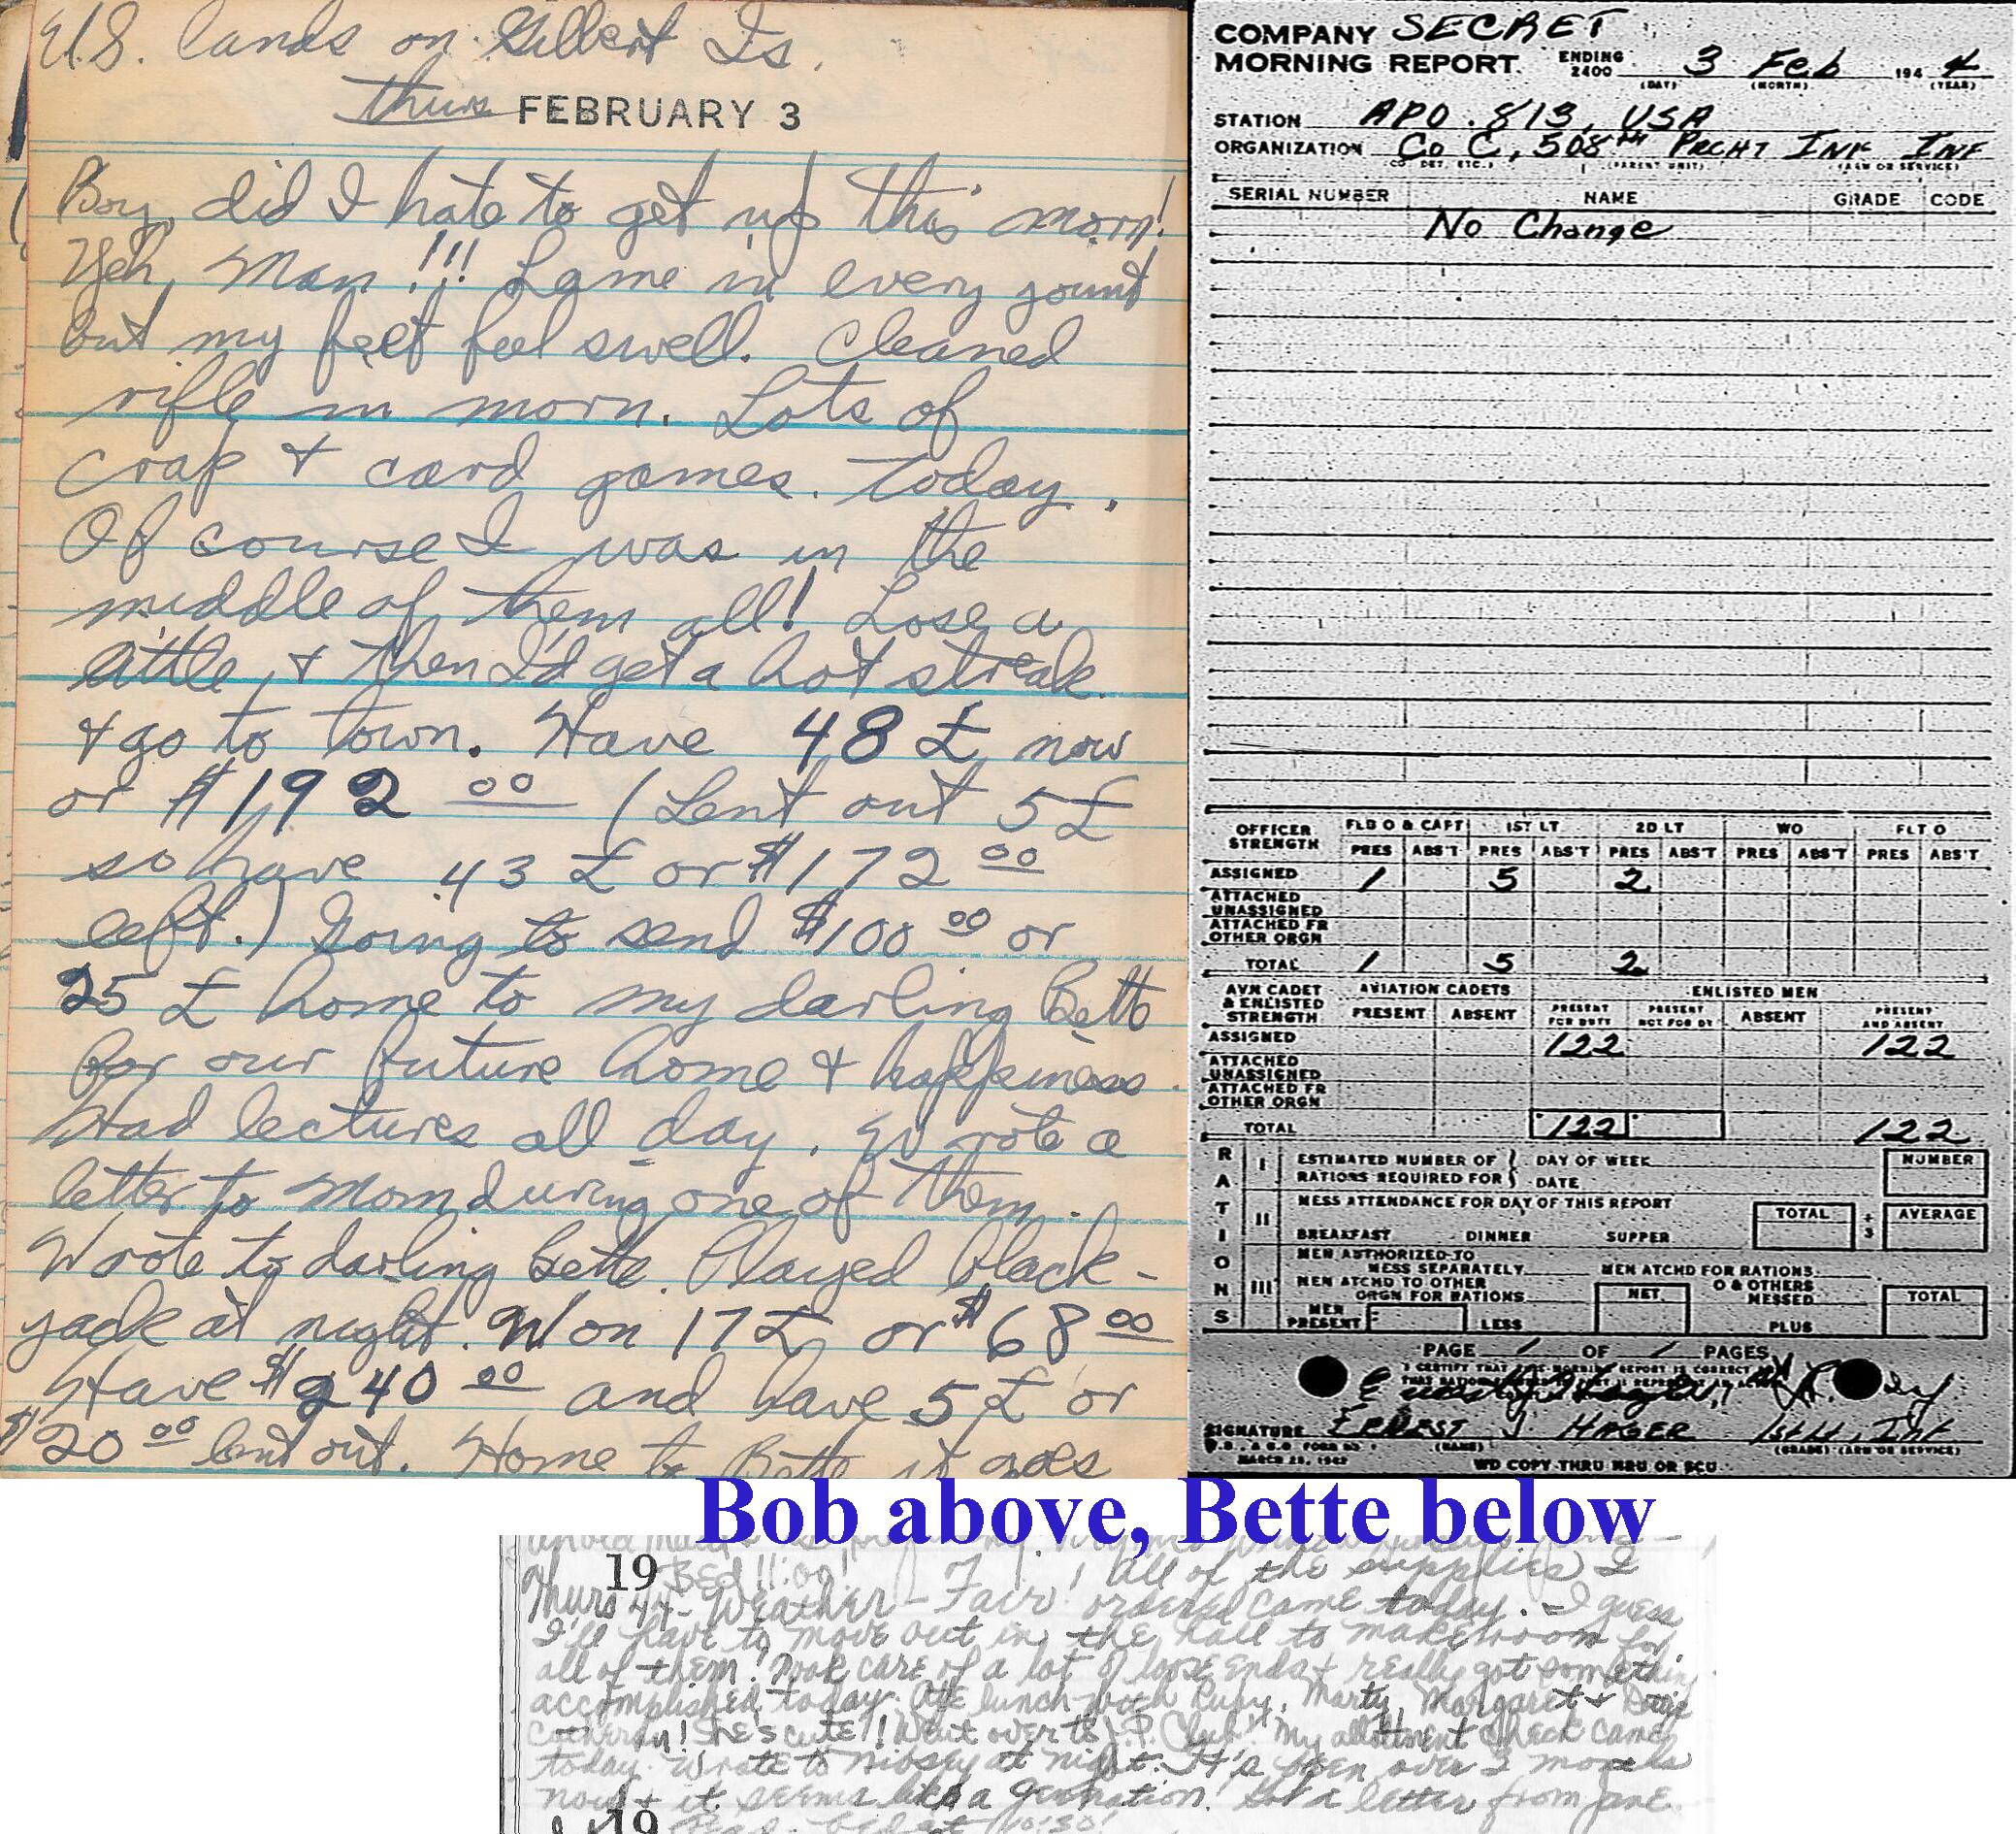 U.S. lands on Gilbert Is.
thurs FEBRUARY 3
Boy, did I hate to get up this morn!
Yeh, Man!!! Lame in every yount
but my feet feel swell. Cleaned
rifle in morn. Lots of
crap + card games. Today.
Of course I was in the
middle of them all! Lose a
little, + then I'd get a hot streak
+ go to town. Have 48 £ now
or $192 00 (Lent out 5 £
so have 43 £ or $172 00
left.) Going to send $100 00 or
25 £ home to my darling Bette
for our future home + happiness.
Had lectures all day. Wrote a
letter to Mom during one of them.
Wrote to darling Bette. Played black-
jack at night. Won 17 £ or $68 00
Have $240 00 and have 5 £ or
$20 00 lent out. Home to Bette it goes
COMPANY SECRET
MORNING REPORT ENDING 2400 3 Feb 1944
(DAY) (MONTH) (YEAR)
STATION APO. 813, USA
ORGANIZATION Co C, 508th Prcht Inf Inf
(CO DET, ETC.) (PARENT UNIT) (ARM OR SERVICE)
SERIAL NUMBER NAME GRADE CODE
No Change
OFFICER STRENGTH FLD O & CAPT 1ST LT 2D LT WO FLT O
PRES ABS'T PRES ABS'T PRES ABS'T PRES ABS'T PRES ABS'T
ASSIGNED 1 5 2
ATTACHED UNASSIGNED
ATTACHED FR OTHER ORGN
TOTAL 1 5 2
AVN CADET & ENLISTED STRENGTH AVIATION CADETS ENLISTED MEN
PRESENT ABSENT PRESENT FOR DUTY PRESENT NOT FOR DY ABSENT PRESENT AND ABSENT
ASSIGNED 122 122
ATTACHED UNASSIGNED
ATTACHED FR OTHER ORGN
TOTAL 122 122
RATIONS
I ESTIMATED NUMBER OF RATIONS REQUIRED FOR DAY OF WEEK DATE NUMBER
II MESS ATTENDANCE FOR DAY OF THIS REPORT TOTAL ÷ 3 AVERAGE
BREAKFAST DINNER SUPPER
III MEN AUTHORIZED TO MESS SEPARATELY MEN ATCHD FOR RATIONS
MEN ATCHD TO OTHER ORGN FOR RATIONS NET O & OTHERS MESSED TOTAL
MEN PRESENT LESS PLUS
PAGE 1 OF 1 PAGES
I CERTIFY THAT THIS MORNING REPORT IS CORRECT
SIGNATURE ERNEST J HAGER 1st Lt, Inf
(NAME) (GRADE) (ARM OR SERVICE)
MARCH 25, 1942 WD COPY THRU MRU OR SCU
Bob above, Bette below
19 BEd 11:00! All of the supplies I
Thurs 44 - Weather - Fair ordered came today. - I guess
I'll have to move out in the hall to make room for
all of them! Took care of a lot of loose ends + really got something
accomplished today. Ate lunch with Ruby, Marty, Margaret +
! He's cute!! Went over to J.P. Club. My allotment check came
today. Wrote to Nibsey at night. It's been over 2 months
now + it seems like a generation! Got a letter from Jane.
19 Bed at 10:30!